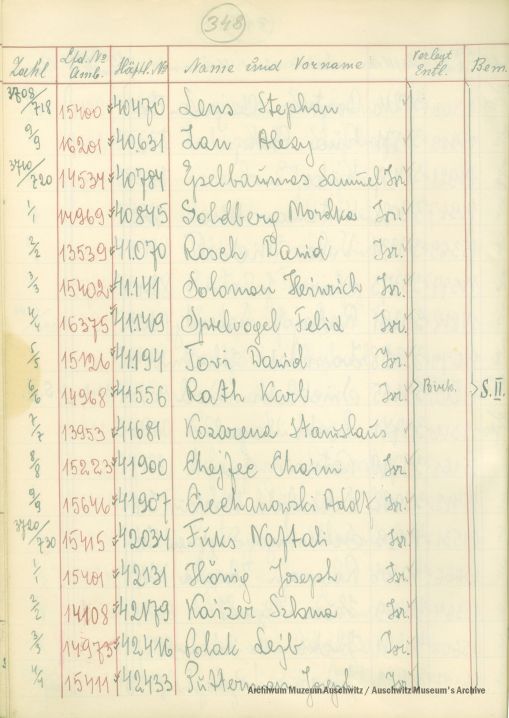 348
Zahl Lfd. No Amb. Häftl. No Name und Vorname Verlegt Entl. Bem.
3709/718 15400 40470 Lens Stephan
9/9 16201 40631 Jan Alexy
3710/720 14534 40784 Eselbaumas Samuel Isr.
1/1 14969 40845 Goldberg Mordka Isr.
2/2 13539 41070 Rosch Dawid Isr.
3/3 15402 41141 Solomon Heinrich Isr.
4/4 16375 41149 Spielvogel Felix Isr.
5/5 15126 41194 Tovi Dawid Isr.
6/6 14968 41556 Rath Karl Isr. Birk. S. II.
7/7 13953 41681 Kozarena Stanislaus
8/8 15223 41900 Chejfec Chaim Isr.
9/9 15646 41907 Ciechanowski Adolf Isr.
3720/730 15415 42034 Fuks Naftali Isr.
1/1 15401 42131 Hönig Joseph Isr.
2/2 14108 42179 Kaizer Szloma Isr.
3/3 14973 42416 Polak Lejb Isr.
4/4 15411 42433 Putterman Joseph Isr.
Archiwum Muzeum Auschwitz / Auschwitz Museum's Archive